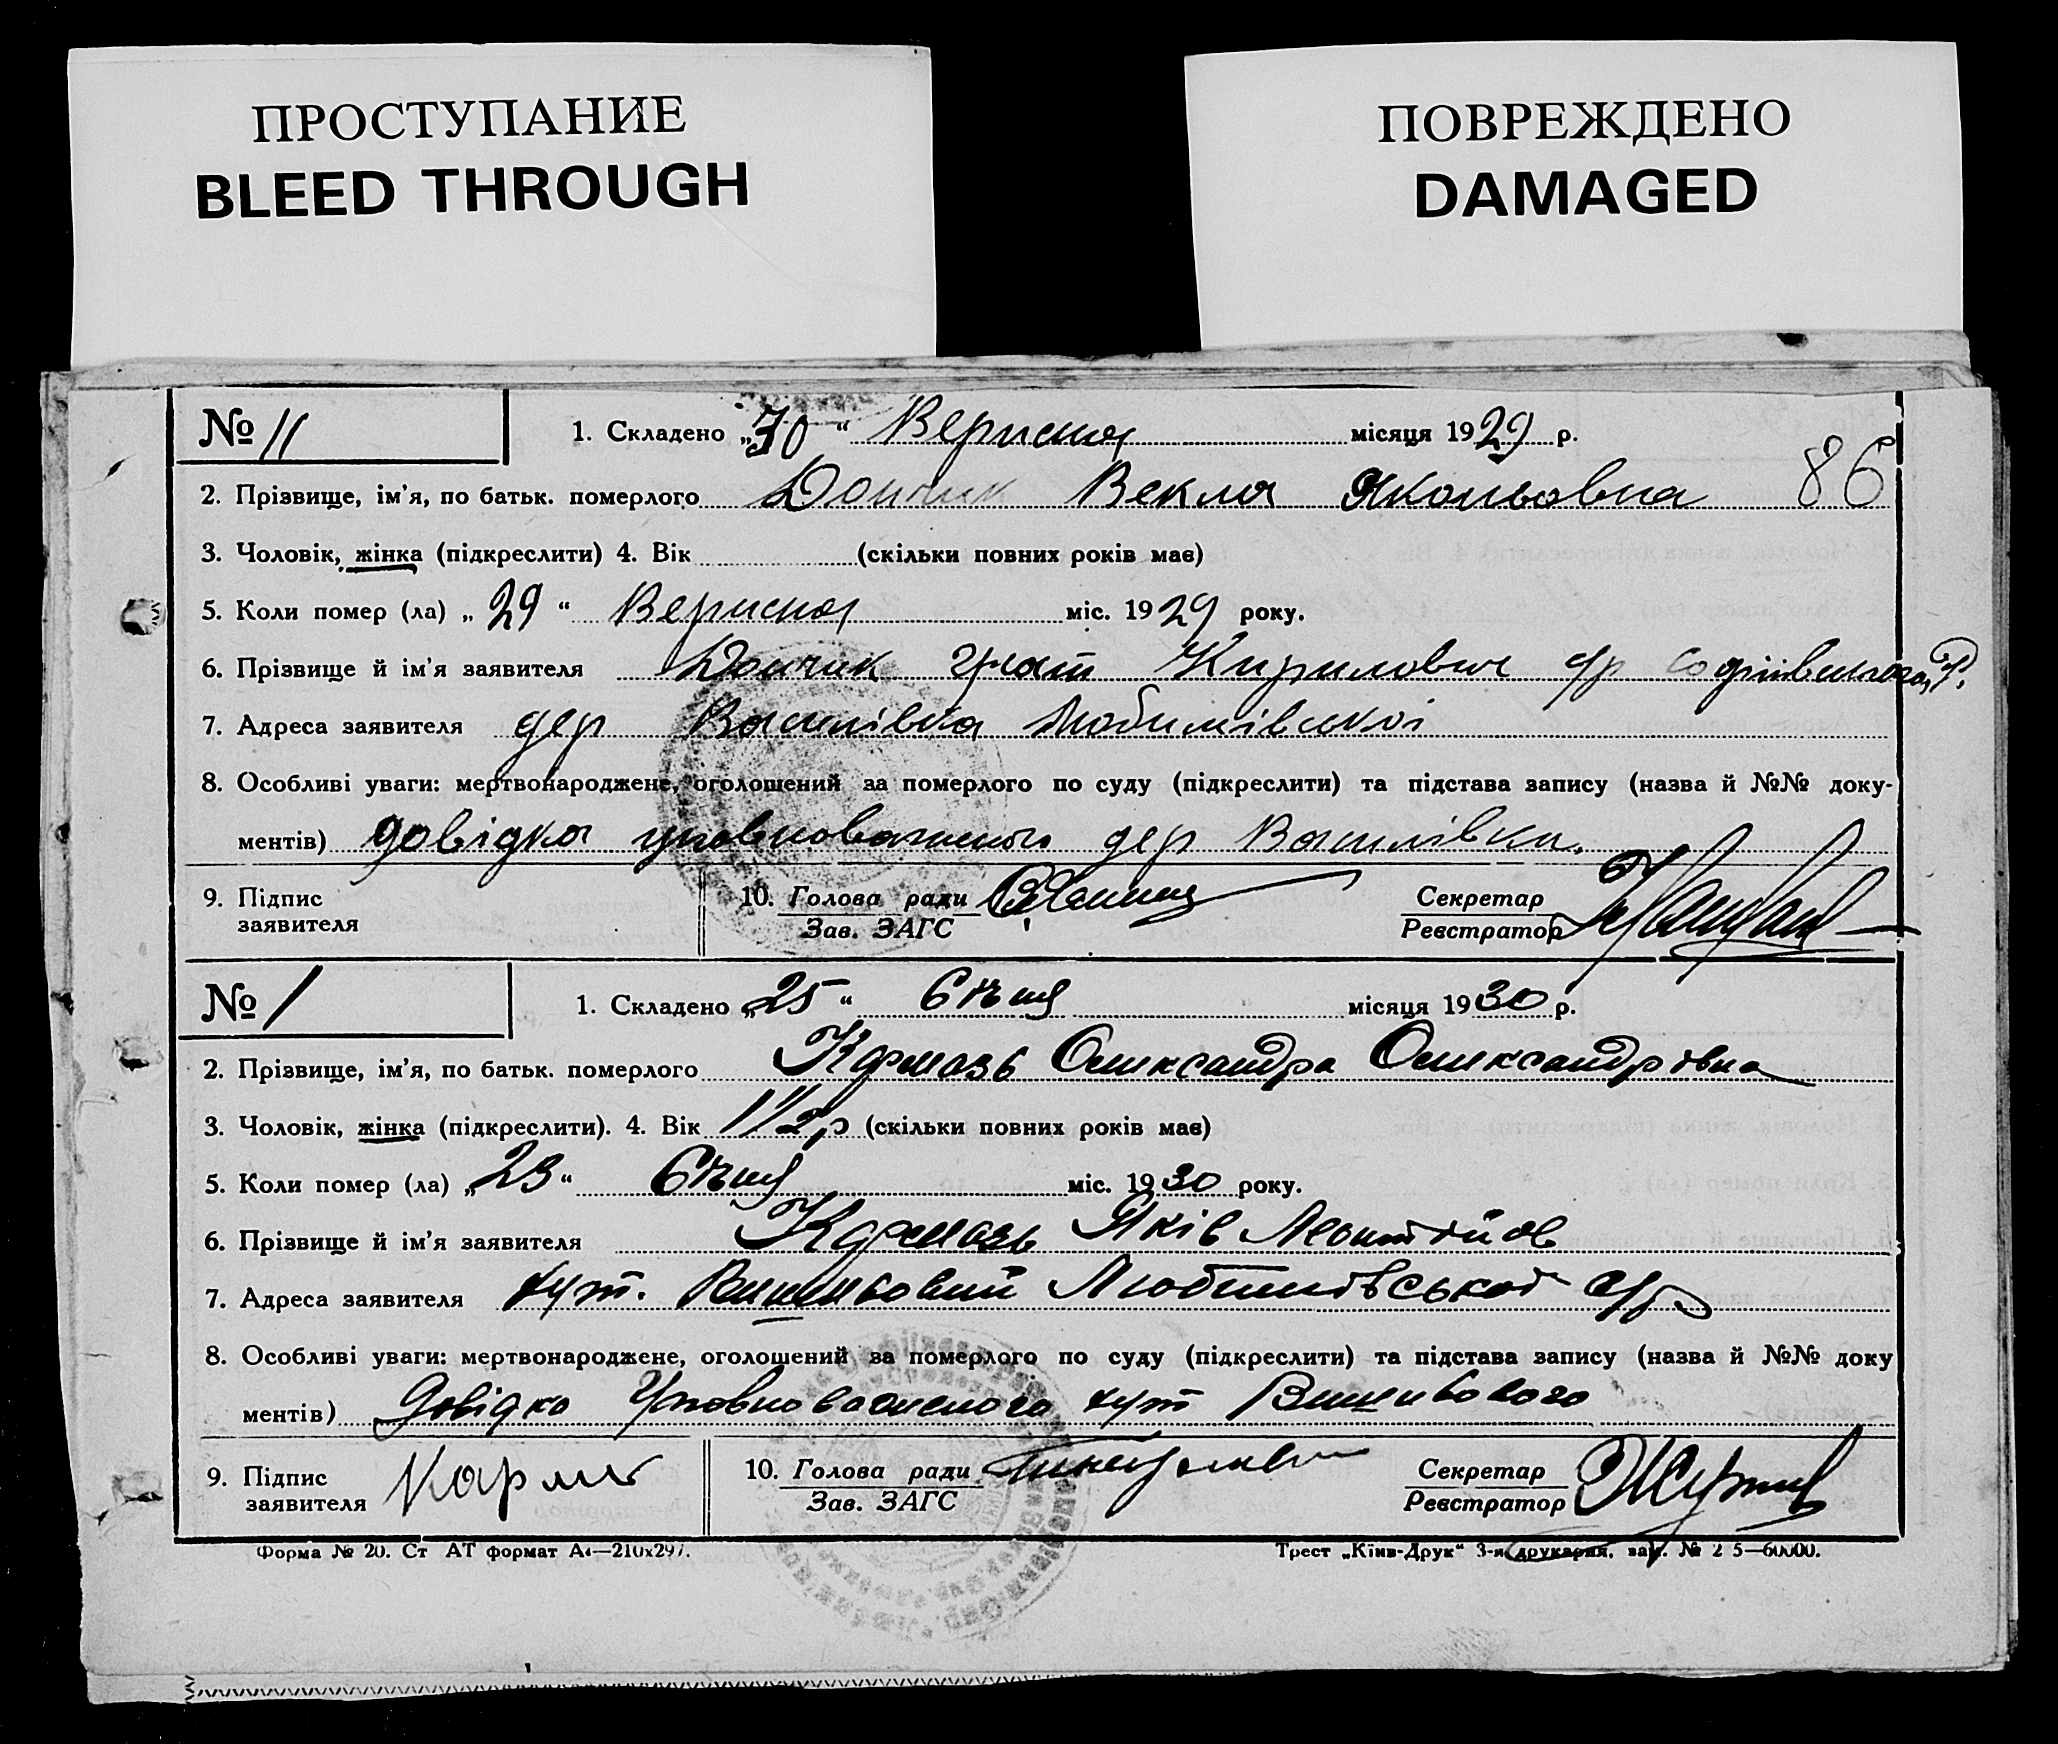 ПРОСТУПАНИЕ
BLEED THROUGH
ПОВРЕЖДЕНО
DAMAGED
№ 11 1. Складено „30“ Верисня місяця 1929 р.
86
2. Прізвище, ім'я, по батьк. померлого Дончик Векла Якольовна
3. Чоловік, жінка (підкреслити) 4. Вік (скільки повних років має)
5. Коли помер (ла) „29“ Верисня міс. 1929 року.
6. Прізвище й ім'я заявителя Дончик Гнат Кирилович
7. Адреса заявителя дер Василівка Любимівської
8. Особливі уваги: мертвонароджене, оголошений за померлого по суду (підкреслити) та підстава запису (назва й №№ доку-
ментів) довідка уповноваженого дер Василівки.
9. Підпис
заявителя
10. Голова ради
Зав. ЗАГС
Секретар
Реєстратор
№ 1 1. Складено „25“ Січня місяця 1930 р.
2. Прізвище, ім'я, по батьк. померлого Кармазь Олександра Олександрівна
3. Чоловік, жінка (підкреслити). 4. Вік 1 1/2 р (скільки повних років має)
5. Коли помер (ла) „23“ Січня міс. 1930 року.
6. Прізвище й ім'я заявителя Кармазь Яків Леонтійов
7. Адреса заявителя хут. Вишньовий Любимівської с/р
8. Особливі уваги: мертвонароджене, оголошений за померлого по суду (підкреслити) та підстава запису (назва й №№ доку
ментів) Довідка Уповноваженого хут Вишньового
9. Підпис
заявителя
10. Голова ради
Зав. ЗАГС
Секретар
Реєстратор
Форма № 20. Ст АТ формат А4—210х297.
Трест „Київ-Друк“ 3-я друкарня, зам. № 2 5—60000.